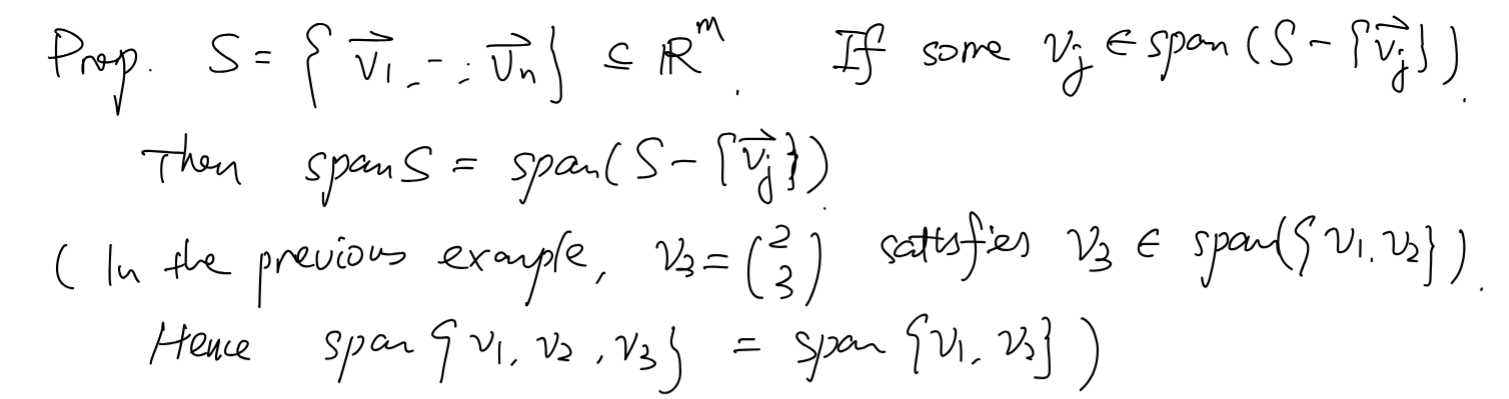 Prop. S = { v⃗₁, -, v⃗ₙ } ⊆ ℝᵐ. If some vⱼ ∈ span (S - {v⃗ⱼ}).
Then span S = span(S - {v⃗ⱼ}).
( In the previous example, v₃ = (2 3) satisfies v₃ ∈ span({v₁, v₂}).
Hence span {v₁, v₂, v₃} = span {v₁, v₂} )